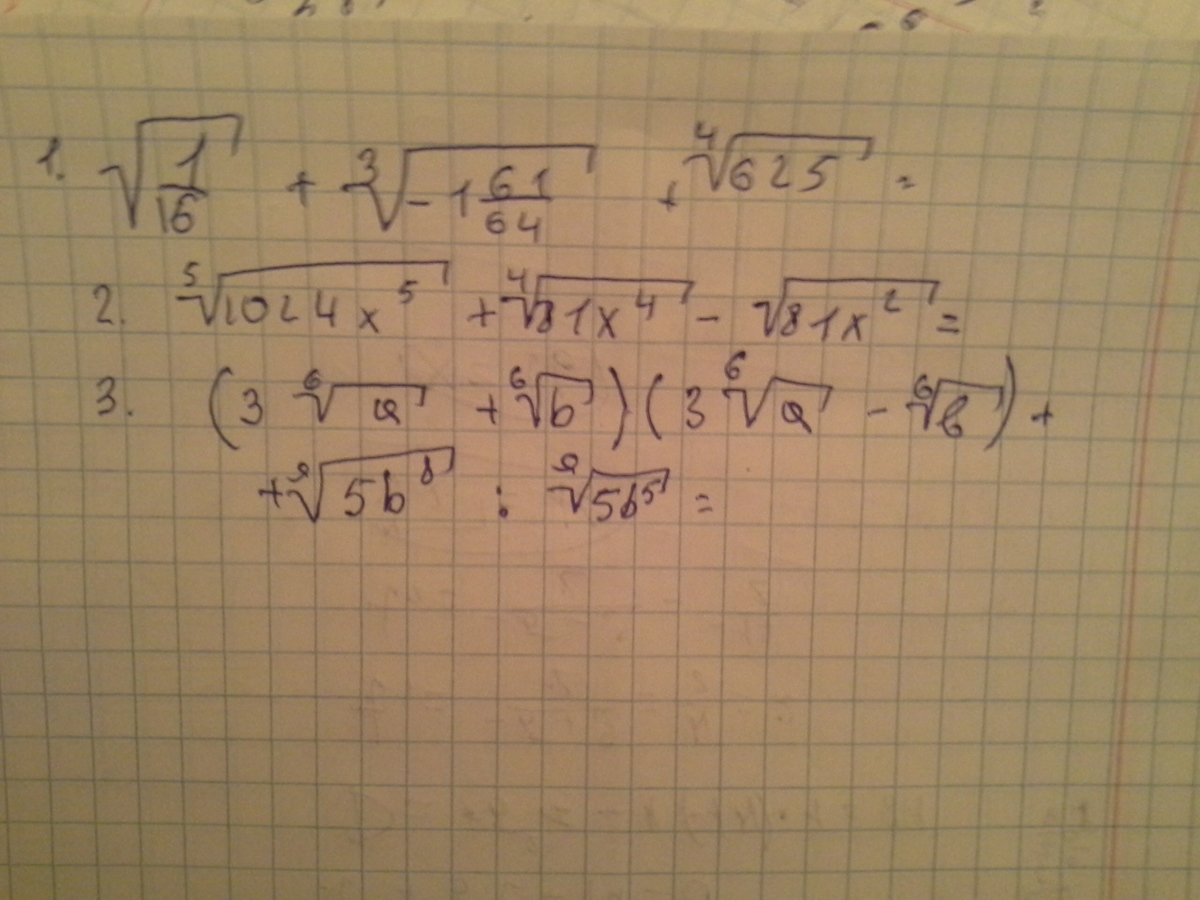 1. √(1/16) + ∛(-1 61/64) + ∜625 =
2. ⁵√(1024x⁵) + ∜(81x⁴) - √(81x²) =
3. (3 ⁶√a + ⁶√b)(3 ⁶√a - ⁶√b) +
+ ⁹√(5b⁸) : ⁹√(5b⁵) =